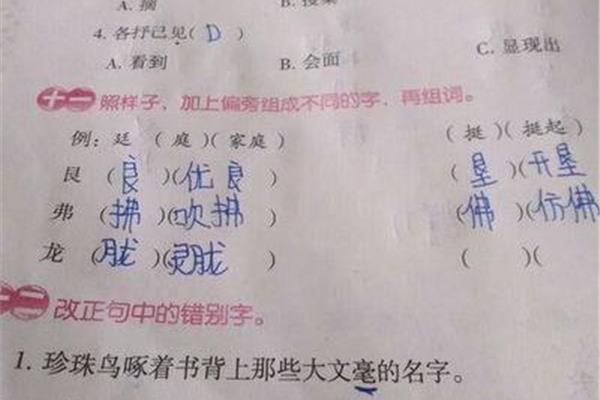 A. 摘 B. 搜集
4. 各抒己见( D )
A. 看到 B. 会面 C. 显现出
十一 照样子，加上偏旁组成不同的字，再组词。
例：廷 ( 庭 )( 家庭 ) ( 挺 )( 挺起 )
艮 ( 良 )( 优良 ) ( 垦 )( 开垦
弗 ( 拂 )( 吹拂 ) ( 佛 )( 仿佛
龙 ( 胧 )( 灵胧 ) ( )(
十二 改正句中的错别字。
1. 珍珠鸟啄着书背上那些大文毫的名字。